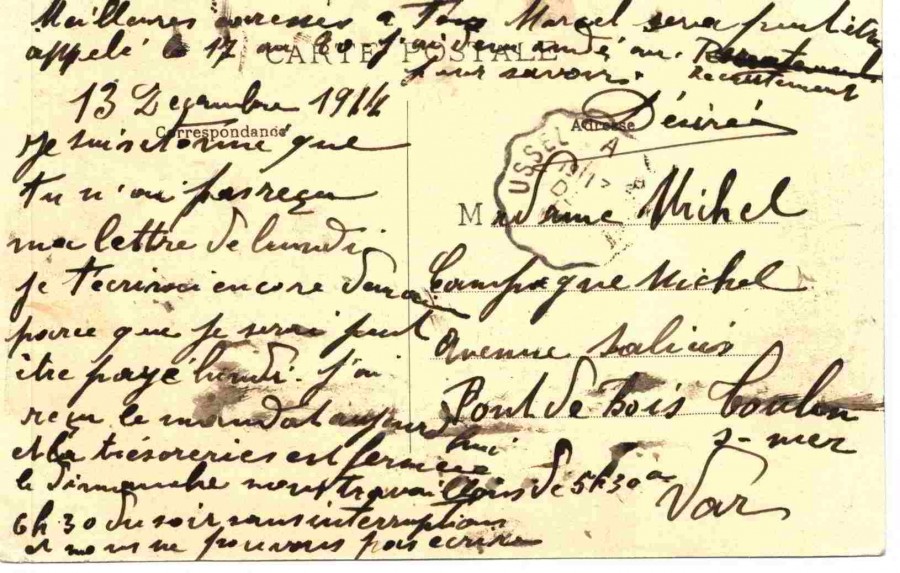 Meilleures caresses a Tous Marcel sera peut être
appelé le 17 au 20 j'ai demandé au
CARTE POSTALE
pour savoir.
Recrutement
13 Decembre 1914
Correspondance
Je suis etonné que
tu n'ai pas reçu
ma lettre de lundi
je t'ecrirai encore demain
parce que je serai peut
être payé lundi. j'ai
reçu le mandat aujourd
hui
et la trésoreries est fermée
le dimanche nous travaillons de 5h30 a
6h30 du soir sans interruption
et nous ne pouvons pas ecrire
Désiré
Adresse
USSEL A
Madame Michel
Campagne Michel
Avenue Salicis
Pont de Bois Toulon
s- mer
Var